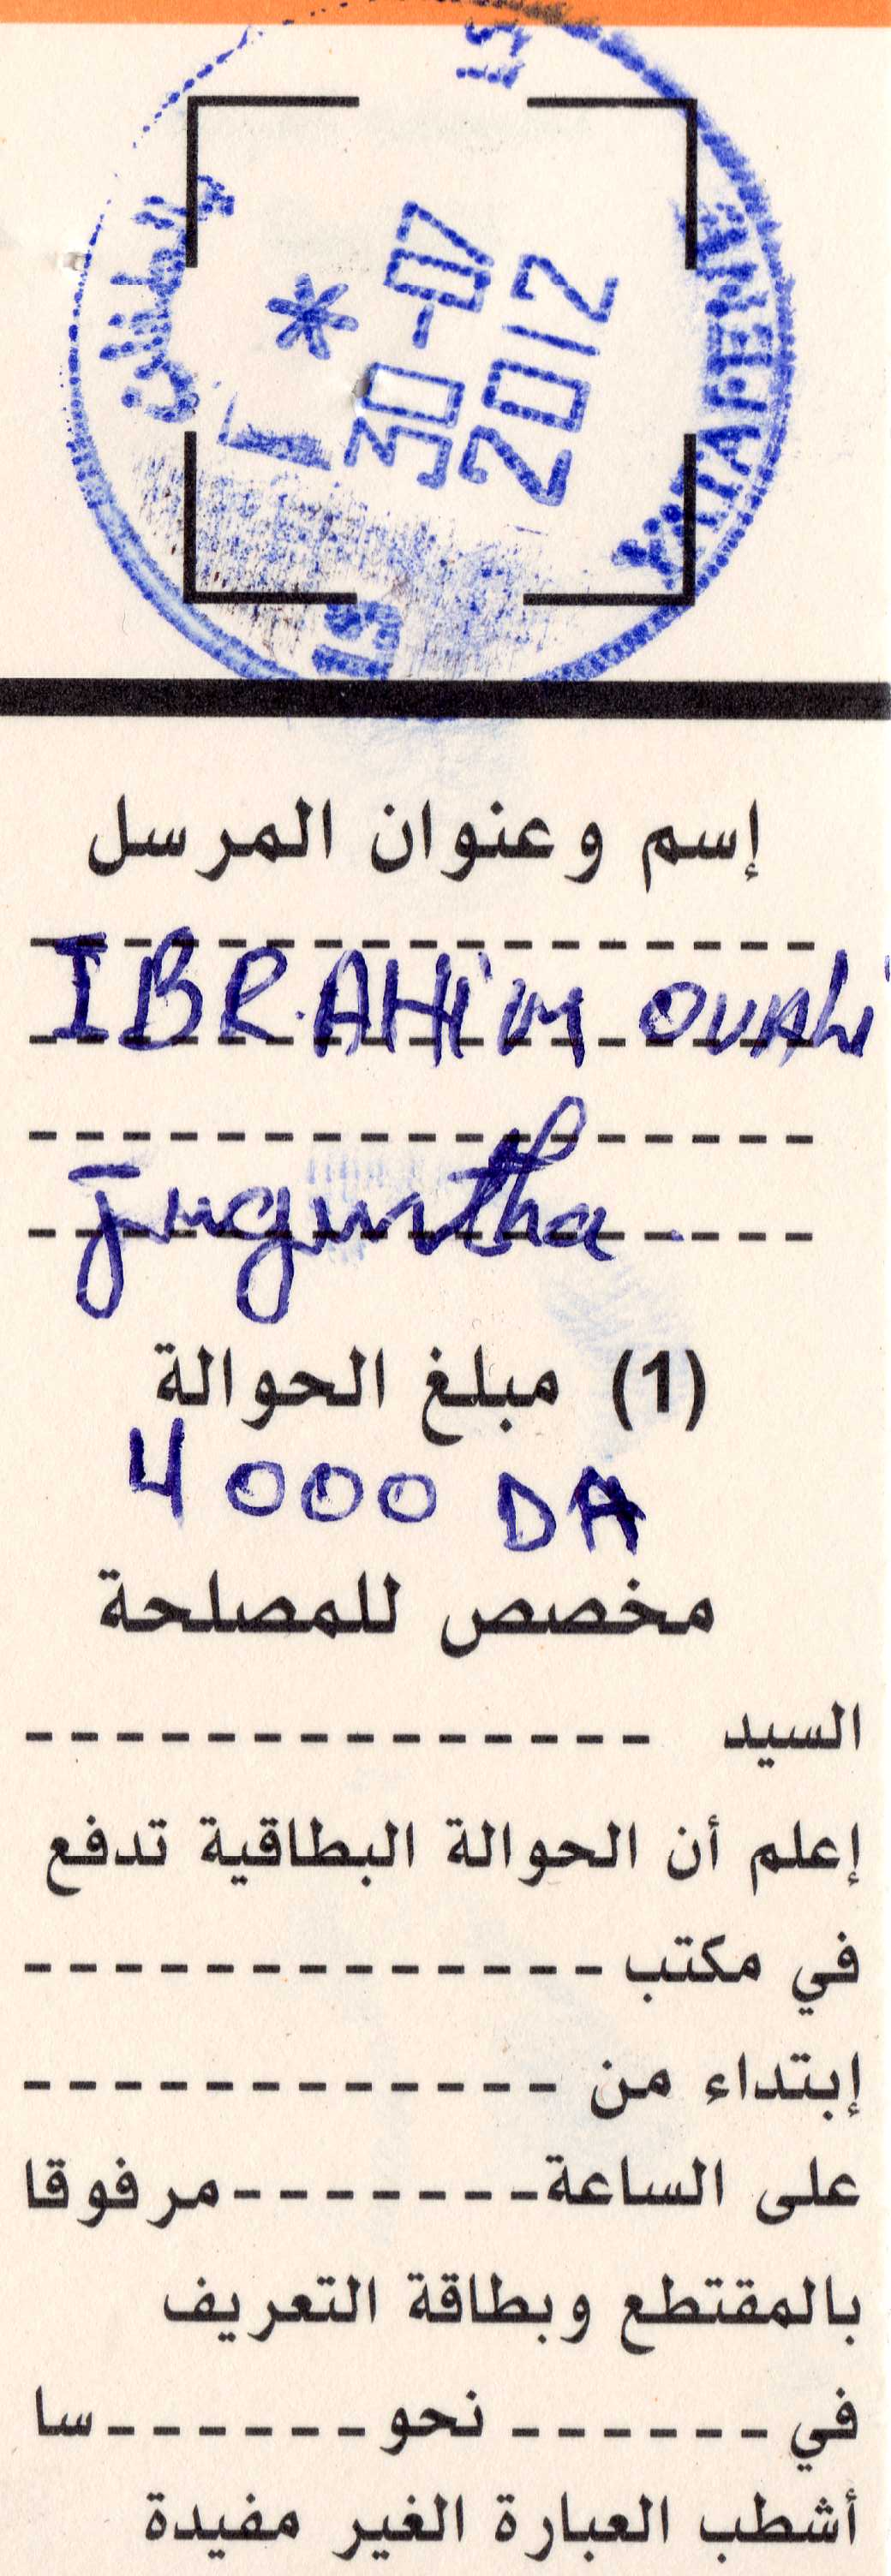 15
30-07
2012
15
إسم وعنوان المرسل
IBRAHim OUALi
Jugurtha
(1) مبلغ الحوالة
4000 DA
مخصص للمصلحة
السيد
إعلم أن الحوالة البطاقية تدفع
في مكتب
إبتداء من
على الساعة مرفوقا
بالمقتطع وبطاقة التعريف
في نحو سا
أشطب العبارة الغير مفيدة